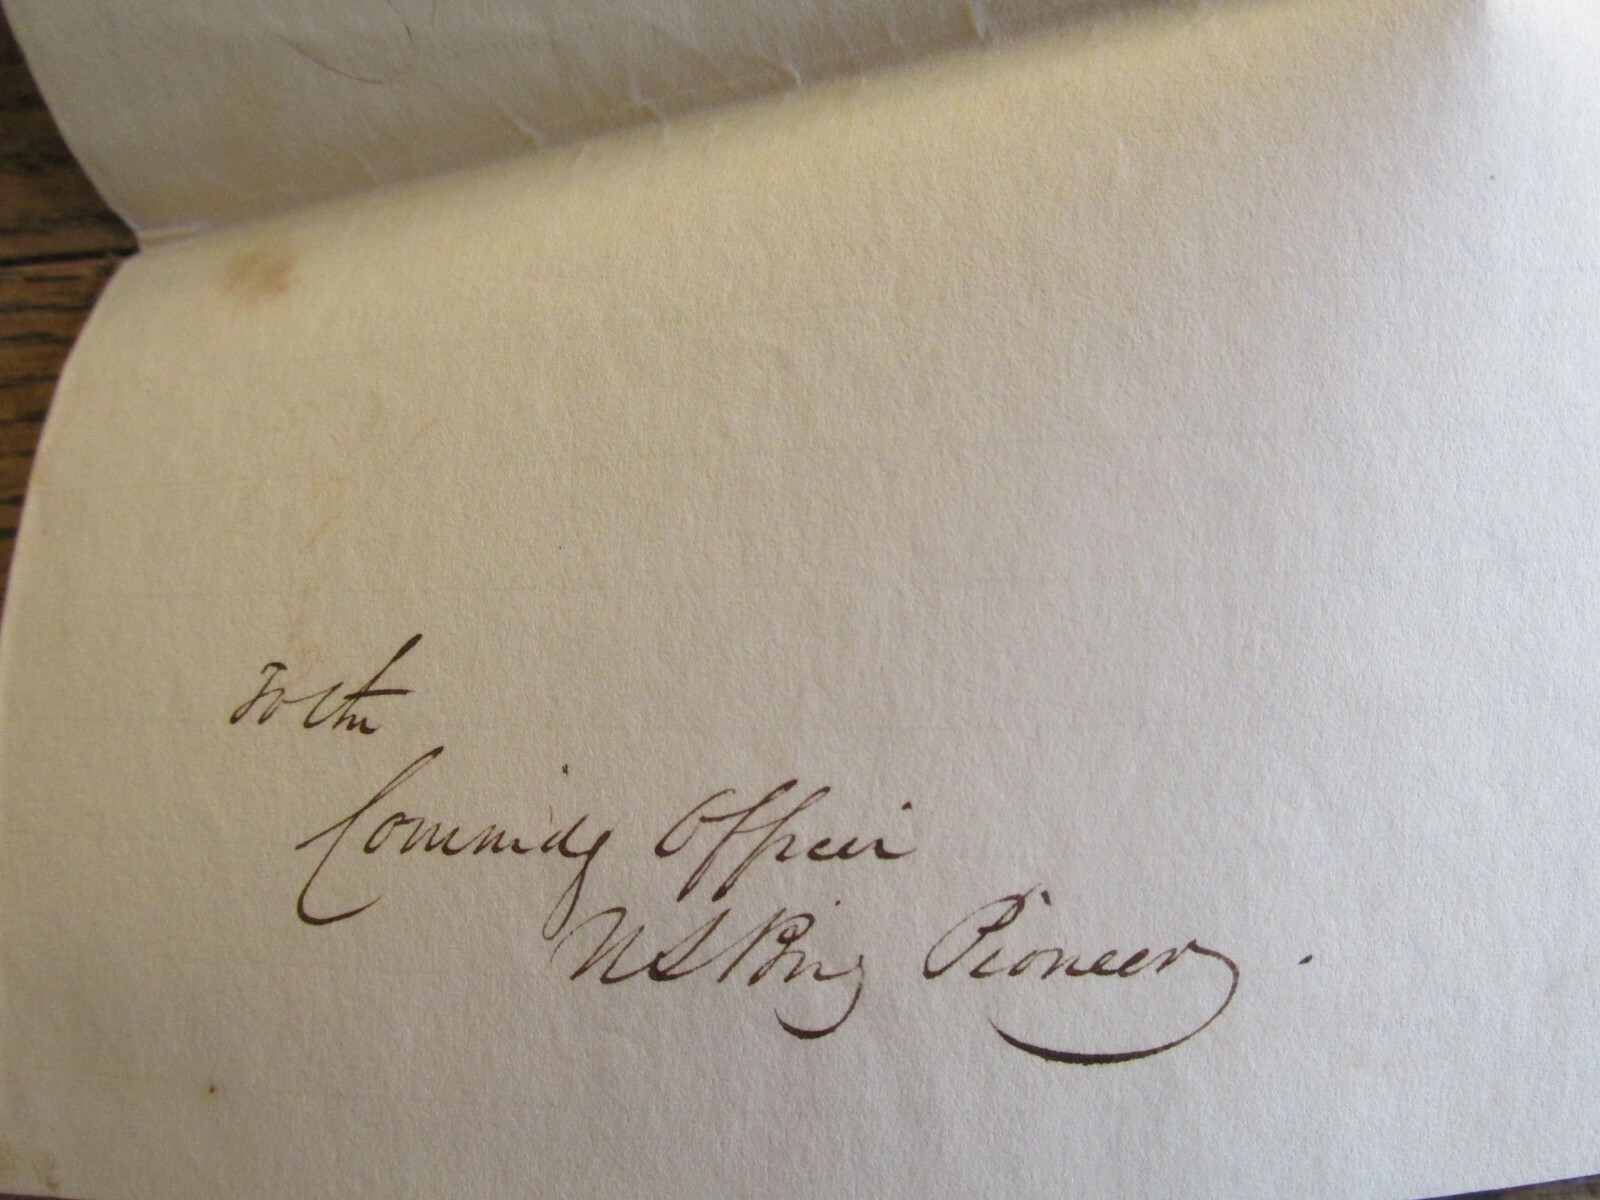 To the
Commdg Officer
US Brig Pioneer.